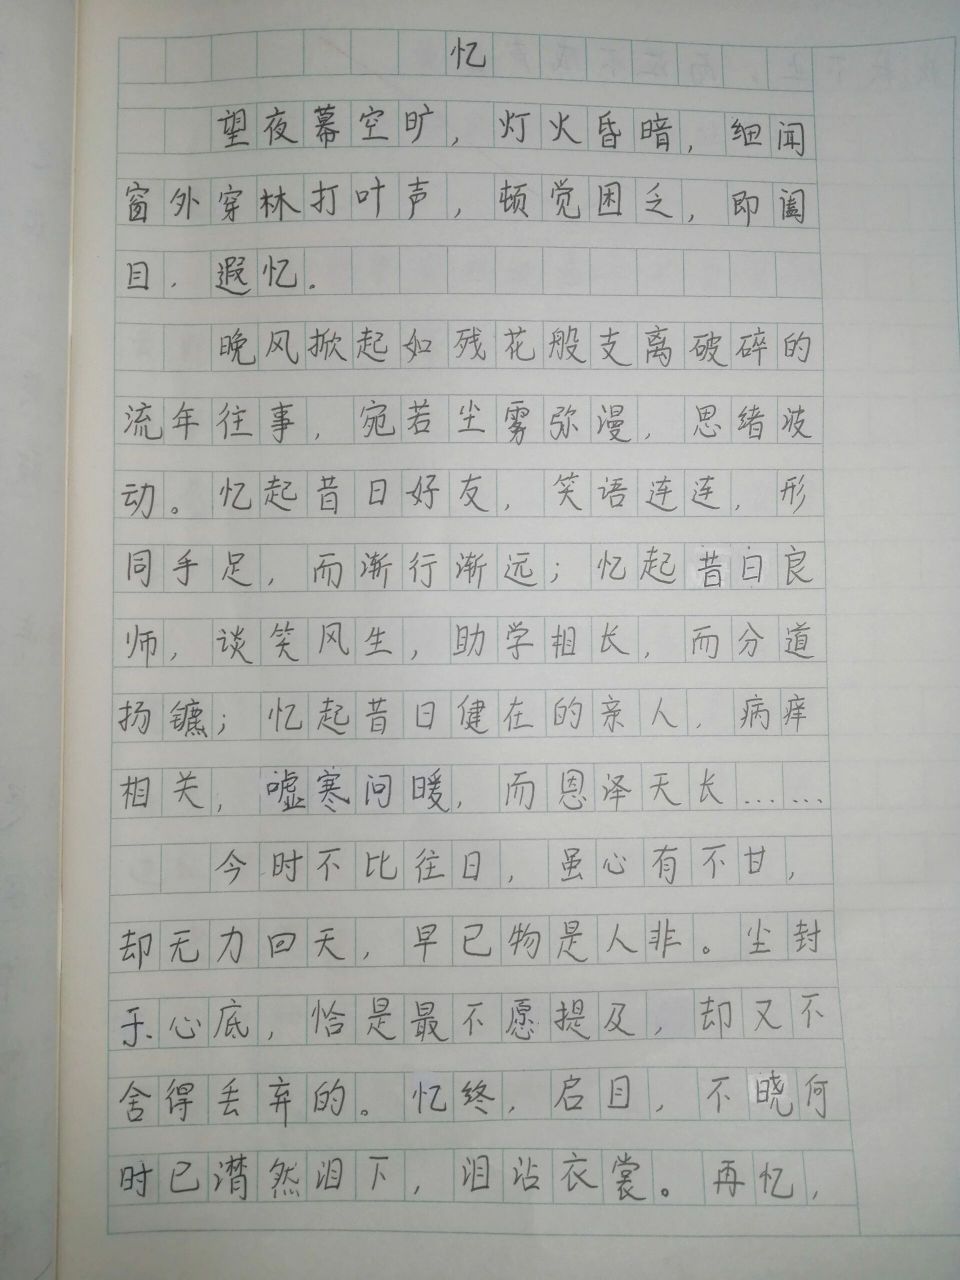 忆
望夜幕空旷，灯火昏暗，细闻
窗外穿林打叶声，顿觉困乏，即阖
目，遐忆。
晚风掀起如残花般支离破碎的
流年往事，宛若尘雾弥漫，思绪波
动。忆起昔日好友，笑语连连，形
同手足，而渐行渐远；忆起昔日良
师，谈笑风生，助学相长，而分道
扬镳；忆起昔日健在的亲人，病痒
相关，嘘寒问暖，而恩泽天长……
今时不比往日，虽心有不甘，
却无力回天，早已物是人非。尘封
于心底，恰是最不愿提及，却又不
舍得丢弃的。忆终，启目，不晓何
时已潸然泪下，泪沾衣裳。再忆，